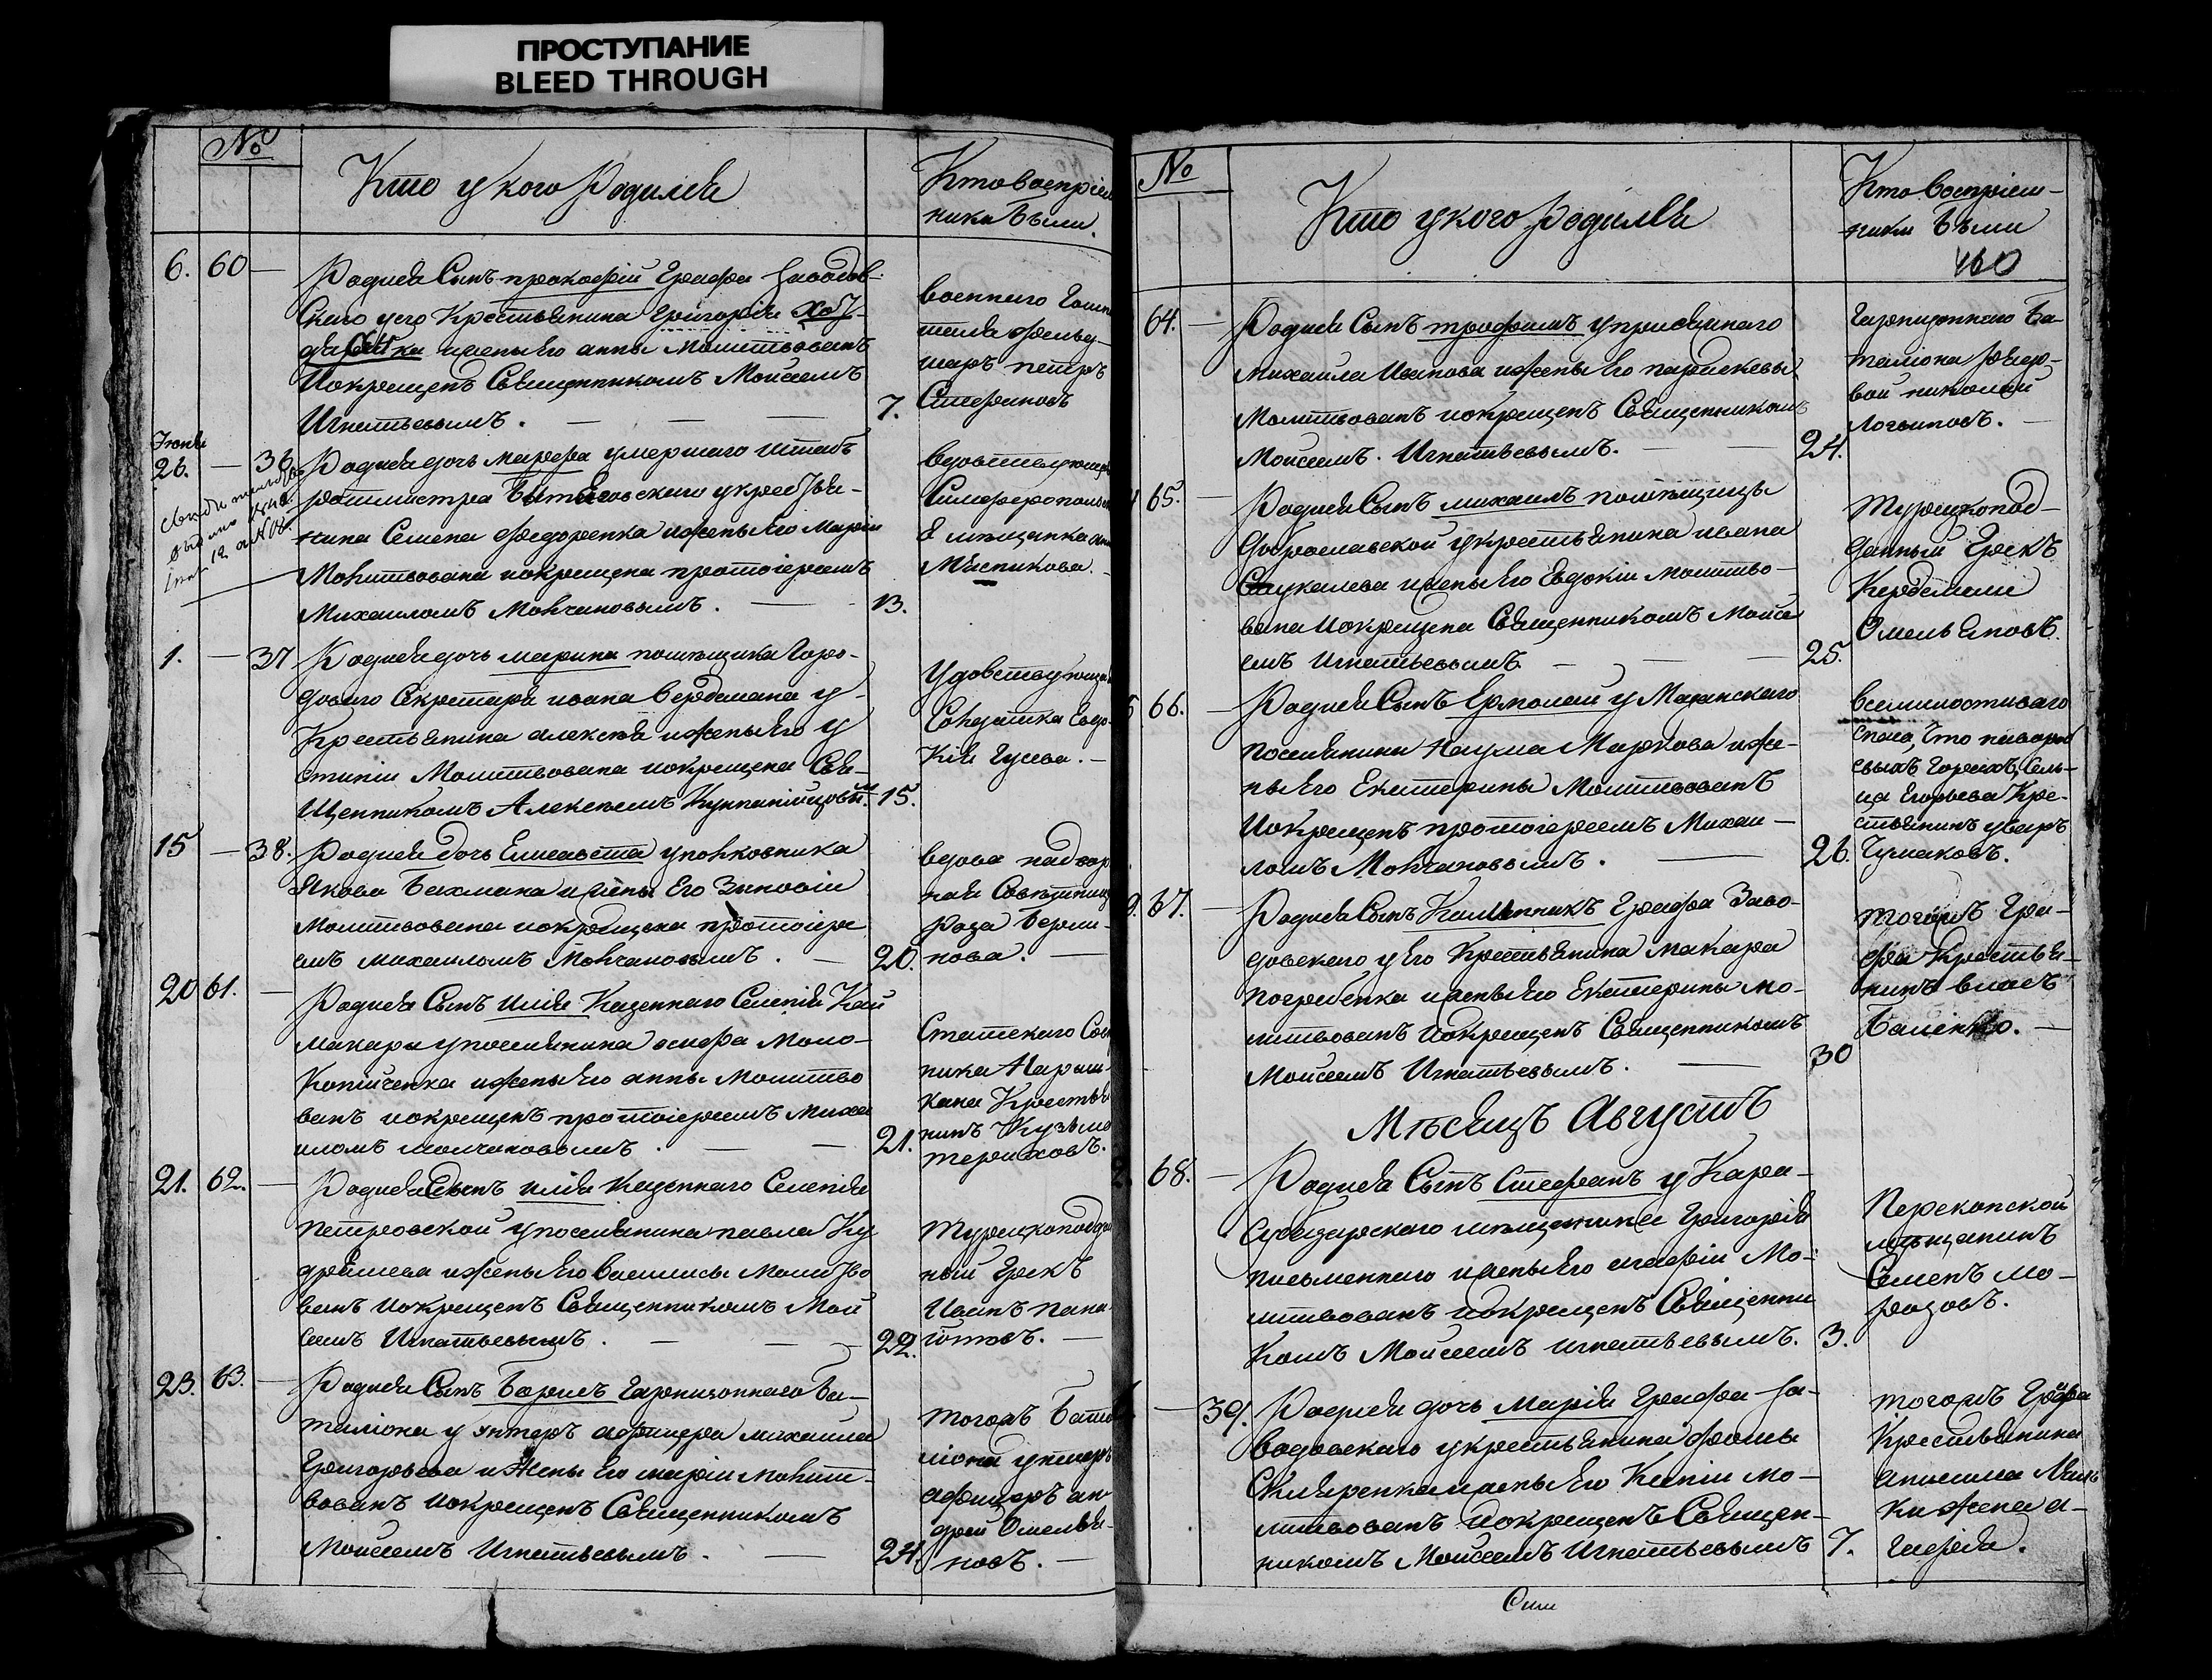 ПРОСТУПАНИЕ
BLEED THROUGH
№
Кто у кого родился
Кто воспріем
ники были.
6. 60 —
Родися Сынъ прокофій Графа Заводов-
скаго у его Крестьянина Григорія
и жены Его анны Молитвованъ
Иокрещенъ Священникомъ Моисеемъ
Игнатьевымъ. — — 7.
военнаго Гошпи
таля фельд-
шаръ петръ
Стефановъ
Іюня
26. — 36.
Родися дочь марфа умершаго штабъ
ротмистра у крестья-
нина Семена Федоренка ижены Его Маріи
Молитвована иокрещена протоіереемъ
Михаиломъ Молчановымъ. — 13.
вдовствующая
Симферопольск
я мещанка
Мясникова.
1. — 37
Родися дочь марина помѣщика Горо-
доваго Секретаря ивана Вердемана у
Крестьянина алексѣя ижены Его у
стиніи Молитвована иокрещена Свя-
щенникомъ Алексѣемъ 15.
Солдатка Евдо-
кія Гусева. —
15 — 38.
Родися дочь Елисавета уполковника
Якова Бахмана ижены Его Зиновіи
Молитвована иокрещена протоіере
емъ михаиломъ Молчановымъ. — 20.
вдова надвор
ная Совѣтница
роза Берли-
нова. —
20 61. —
Родися Сынъ илія Казеннаго Селенія Кай
макары упоселянина осифа Моло-
ижены Его анны Молитво
ванъ иокрещенъ протоіереемъ Миха
иломъ молчановымъ. — — 21.
Статскаго Сов
ника Нарыш-
кана Крестья
нинъ Кузьма
тереховъ.
21. 62. —
Родися Сынъ илія Казеннаго Селенія
петровской упоселянина павла Ку
дряшева ижены Его василисы Молитво
ванъ иокрещенъ Священникомъ Мой
сеемъ Игнатьевымъ. — — 22.
Турецкоподдан
ный Грекъ
Иванъ пана-
іотовъ. —
23. 63. —
Родися Сынъ Борисъ Гарнизоннаго Ба-
таліона у унтеръ афицера михаила
Григорьева и Жены Его маріи Молит-
вованъ иокрещенъ Священникомъ
Моисеемъ Игнатьевымъ. — 24.
тогожъ Бата
ліона унтеръ
афицеръ ан-
дрей Омелья-
новъ. —
№
Кто у кого родился
Кто воспріем-
ники были
460
64. —
Родися Сынъ трофимъ уприсяжнаго
Михаила Иванова ижены Его параскевы
Молитвованъ иокрещенъ Священникомъ
Моисеемъ Игнатьевымъ. — 24.
Гарнизоннаго Ба-
таліона рядо-
вой николай
Логвиновъ. —
65. —
Родися Сынъ михаилъ помѣщицы
Доброславской укрестьянина ивана
ижены Его Евдокіи молитво-
вана Иокрещена Священникомъ Мойсе
емъ Игнатьевымъ — — 25.
Турецкопод-
данный Грекъ
Омельяновъ.
66. —
Родися Сынъ Ермолай у Мазанскаго
поселянина Наума Маркова ижe-
ны Его Екатерины Молитвованъ
Иокрещенъ протоіереемъ Михаи-
ломъ Молчановымъ. — 26.
всемилостиваго
спаса, Что на воробь
евыхъ Горахъ, Сель-
ца Егорьева Кре-
стьянинъ уваръ
Чумаковъ.
67. —
Родися Сынъ Каллинникъ Графа Заво-
довскаго у Его Крестьянина макара
погребенка ижены Его Екатерины мо-
литвованъ иокрещенъ Священникомъ
Моисеемъ Игнатьевымъ. — 30
тогожъ Гра-
фа Крестья-
нинъ власъ
Мѣсяцъ Августъ
68. —
Родися Сынъ Стефанъ у Кара-
субазарскаго мѣщанина Григорія
писменнаго ижены Его агафіи Мо-
литвованъ иокрещенъ Священни
комъ Моисеемъ игнатьевымъ. 3.
Перекопской
мѣщанинъ
Семенъ Мо-
розовъ.
— 39.
Родися дочь Марія Графа За-
водовскаго укрестьянина фомы
Скляренка ижены Его Ксеніи мо-
литвованъ иокрещенъ Священ-
никомъ Моисеемъ Игнатьевымъ 7.
тогожъ Графа
Крестьянина
жена а-
гафія.